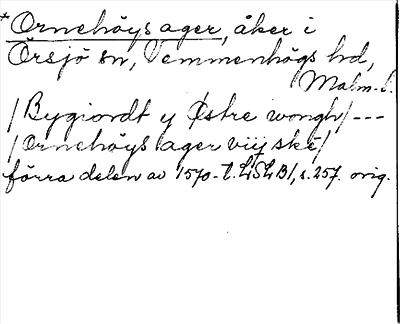 *Ornehöys ager, åker i
Örsjö sn, Vemmenhögs hd,
Malm. l.
/Bygiordt y Østre wongh/---
/Ornehöys ager viij ske/
förra delen av 1570-t. LSLB/, s. 257. orig.